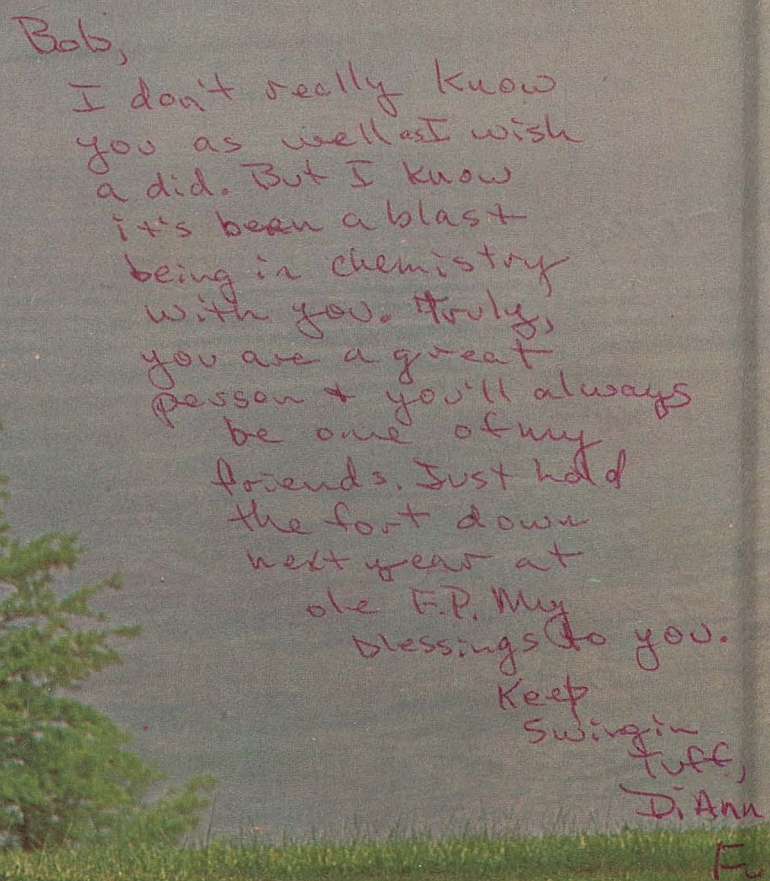 Bob,
I don't really know
you as well as I wish
a did. But I know
it's been a blast
being in chemistry
with you. Truly,
you are a great
person + you'll always
be one of my
friends. Just hold
the fort down
next year at
ole F.P. My
blessings to you.
Keep
Swingin
tuff,
DiAnn